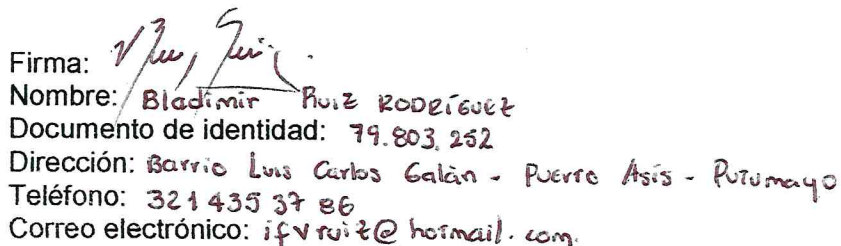 Firma:
Nombre: Bladimir Ruiz RODRÍGUEZ
Documento de identidad: 79.803.252
Dirección: Barrio Luis Carlos Galán - Puerto Asís - Putumayo
Teléfono: 321 435 37 86
Correo electrónico: ifvruiz@hotmail.com.